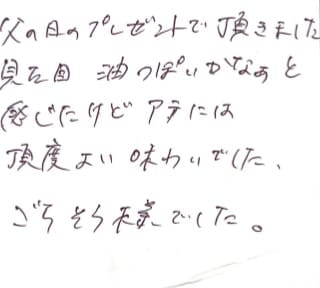 父の日のプレゼントで頂きました
見た目 油っぽいかなぁと
感じたけど アテには
丁度よい味わいでした、
ごちそう様でした。